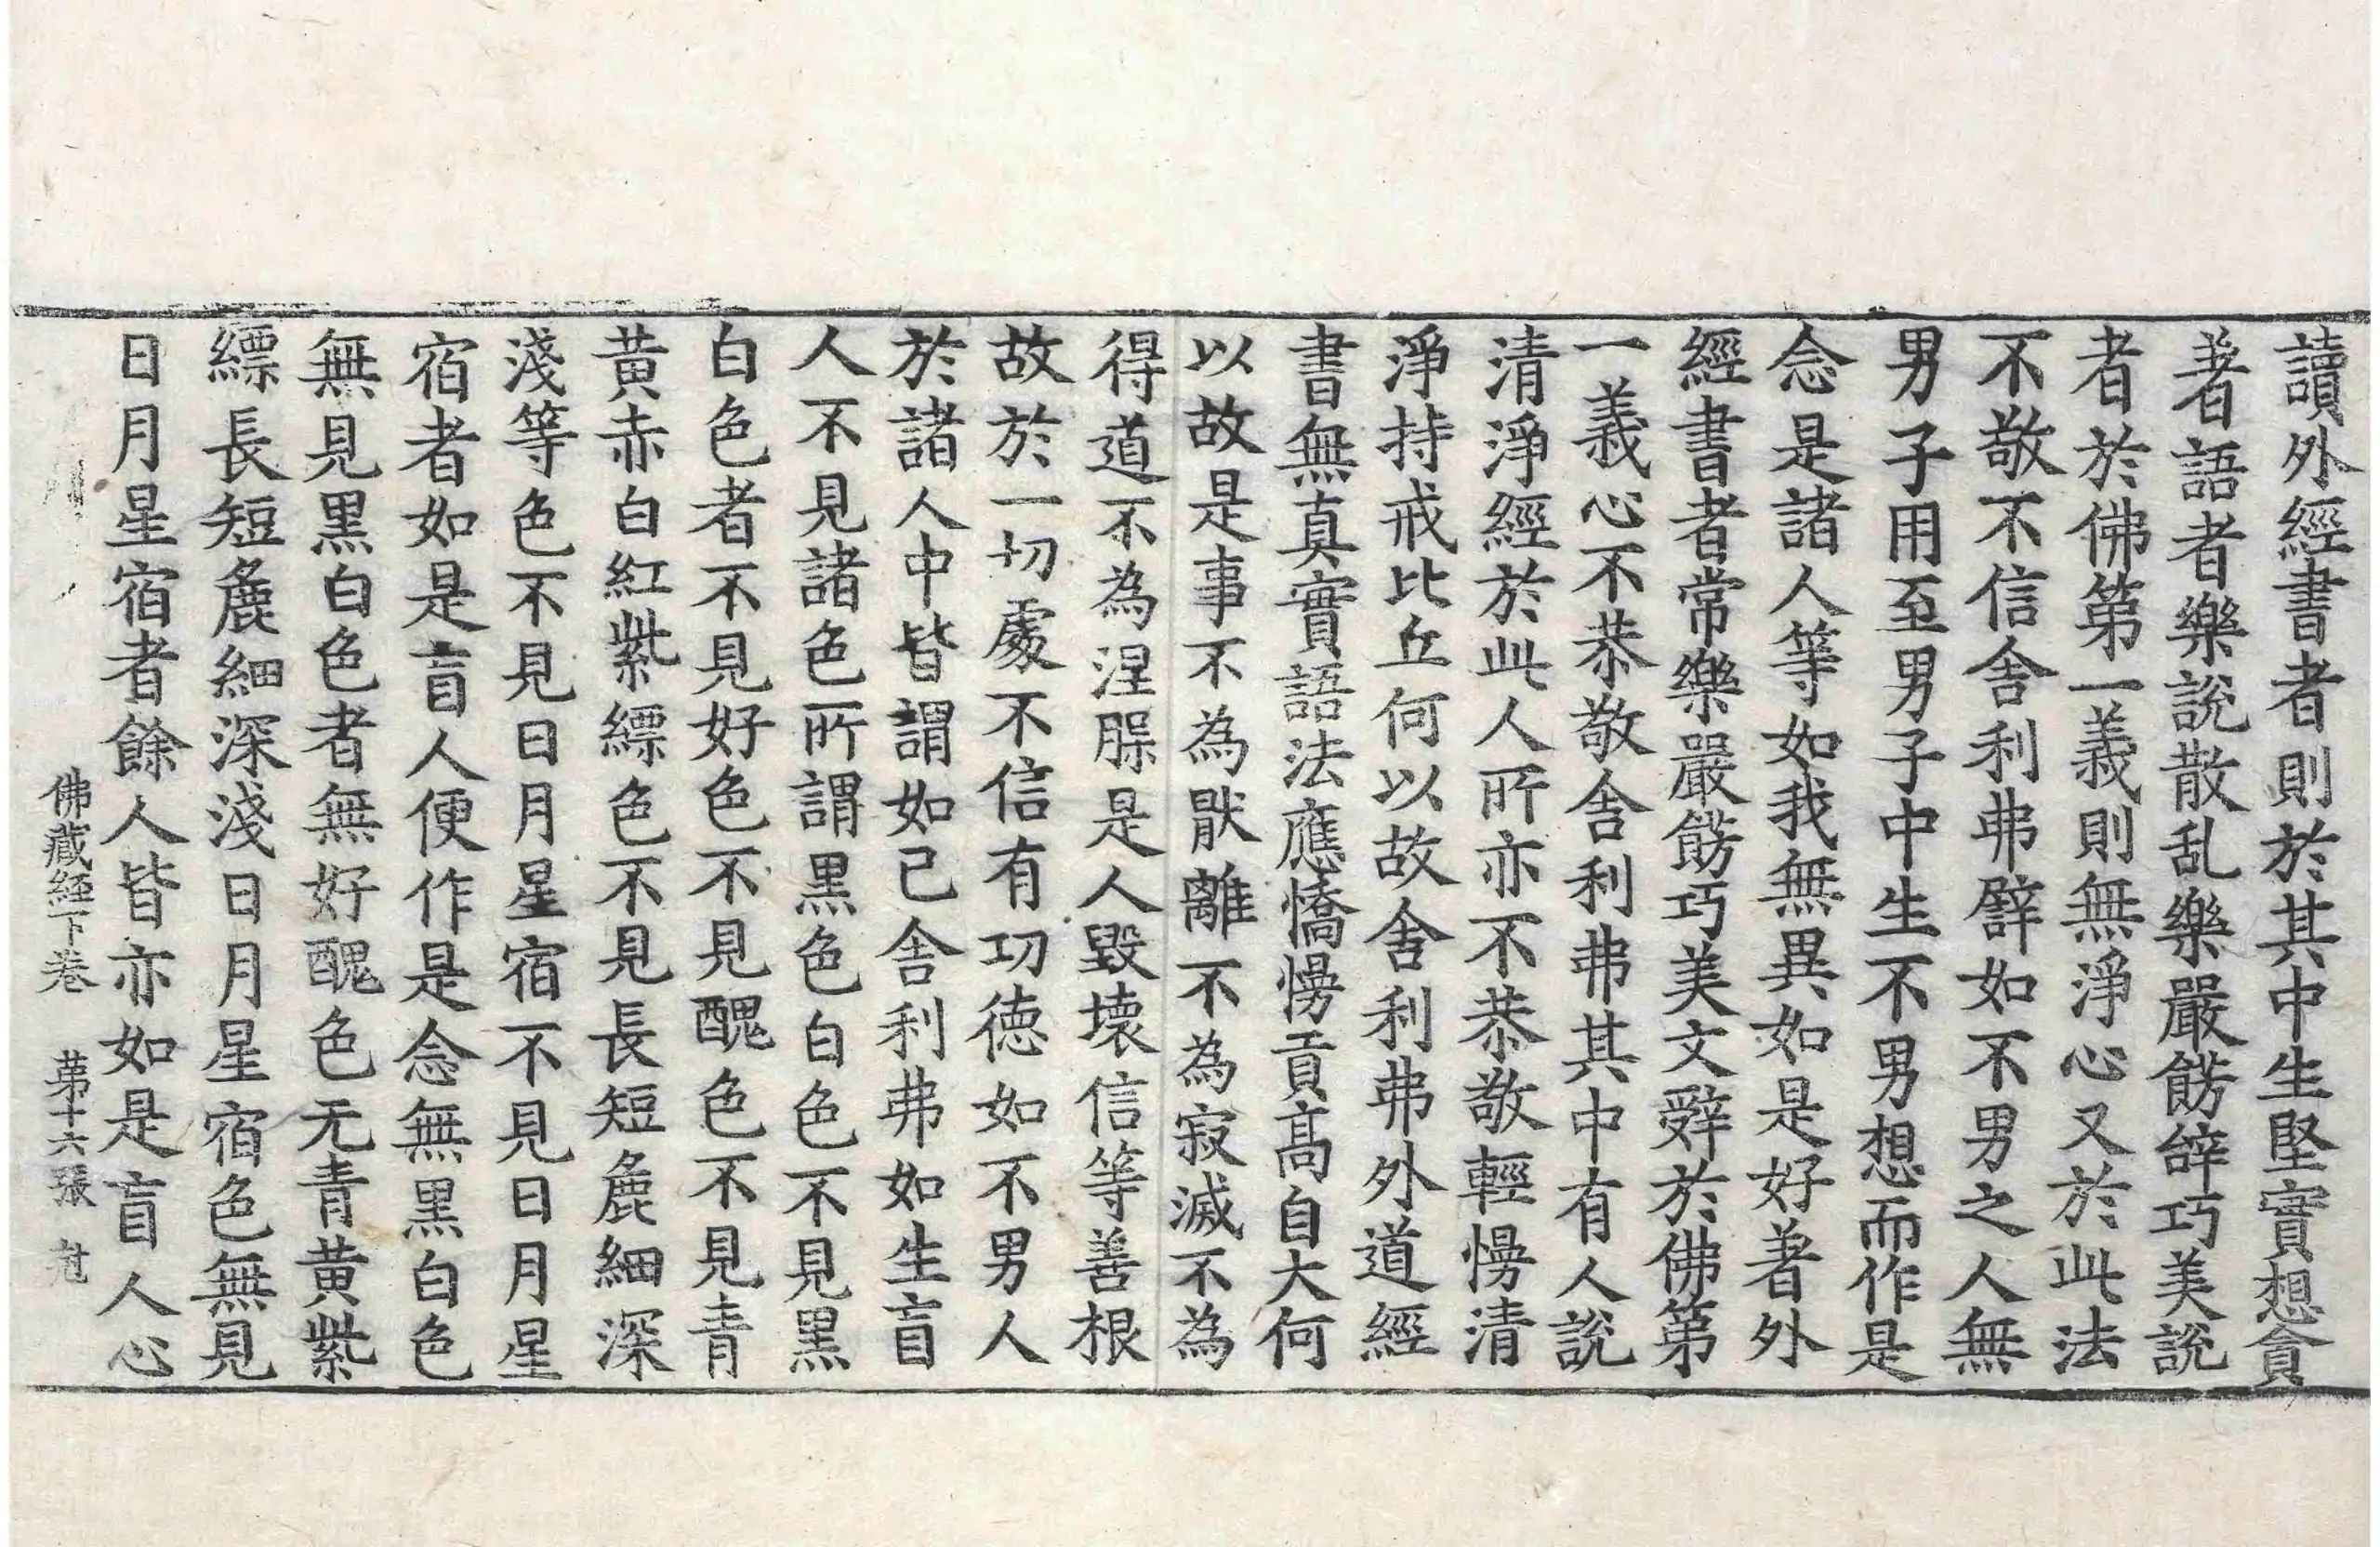 讀外經書者則於其中生堅實想貪
著語者樂說散乱樂嚴餝辝巧美說
者於佛第一義則無淨心又於此法
不敬不信舍利弗譬如不男之人無
男子用至男子中生不男想而作是
念是諸人等如我無異如是好著外
經書者常樂嚴餝巧美文辝於佛第
一義心不恭敬舍利弗其中有人說
清淨經於此人所亦不恭敬輕慢清
淨持戒比丘何以故舍利弗外道經
書無真實語法應憍慢貢高自大何
以故是事不為猒離不為寂滅不為
得道不為涅槃是人毀壞信等善根
故於一切處不信有功德如不男人
於諸人中皆謂如己舍利弗如生盲
人不見諸色所謂黑色白色不見黑
白色者不見好色不見醜色不見青
黃赤白紅紫縹色不見長短麁細深
淺等色不見日月星宿不見日月星
宿者如是盲人便作是念無黑白色
無見黑白色者無好醜色无青黃紫
縹長短麁細深淺日月星宿色無見
日月星宿者餘人皆亦如是盲人心
佛藏経下卷 第十六張